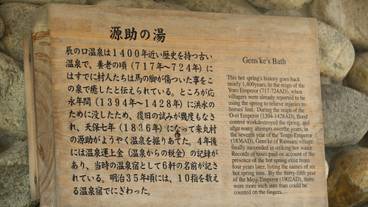 源助の湯
辰の口温泉は1400年近い歴史を持つ古い
温泉で、養老の頃（717年〜724年）に
はすでに村人たちは馬の脚が傷ついた事をこ
の泉で癒したと伝えられている。ところが応
永年間（1394年〜1428年）に洪水の
ために没したため、復旧の試みが幾度もなさ
れ、天保七年（1836年）になって来丸村
の源助がようやく温泉を掘りあてた。4年後
には温泉運上金（温泉からの税金）の記録が
あり、当時の温泉宿として6軒の名前が記さ
れている。明治35年頃には、10指を数え
る温泉宿でにぎわった。
Genske's Bath
This hot spring's history goes back
nearly 1,400years. In the reign of the
Yoro Emperor (717-724AD),
villagers were already reported to be
using the spring to relieve injuries to
horses' feet. During the reign of the
O-ei Emperor (1394-1428AD), flood
the seventh year of the Tenpo Emperor
(1836AD), Genske of Raimaru village
finally succeeded in striking hot water.
Records of taxes paid on account of the
presence of the hot spring exist from
four years later, listing the names of six
hot spring inns. By the thirty-fifth year
of the Meiji Emperor (1902AD), there
were more such inns than could be
counted on the fingers.